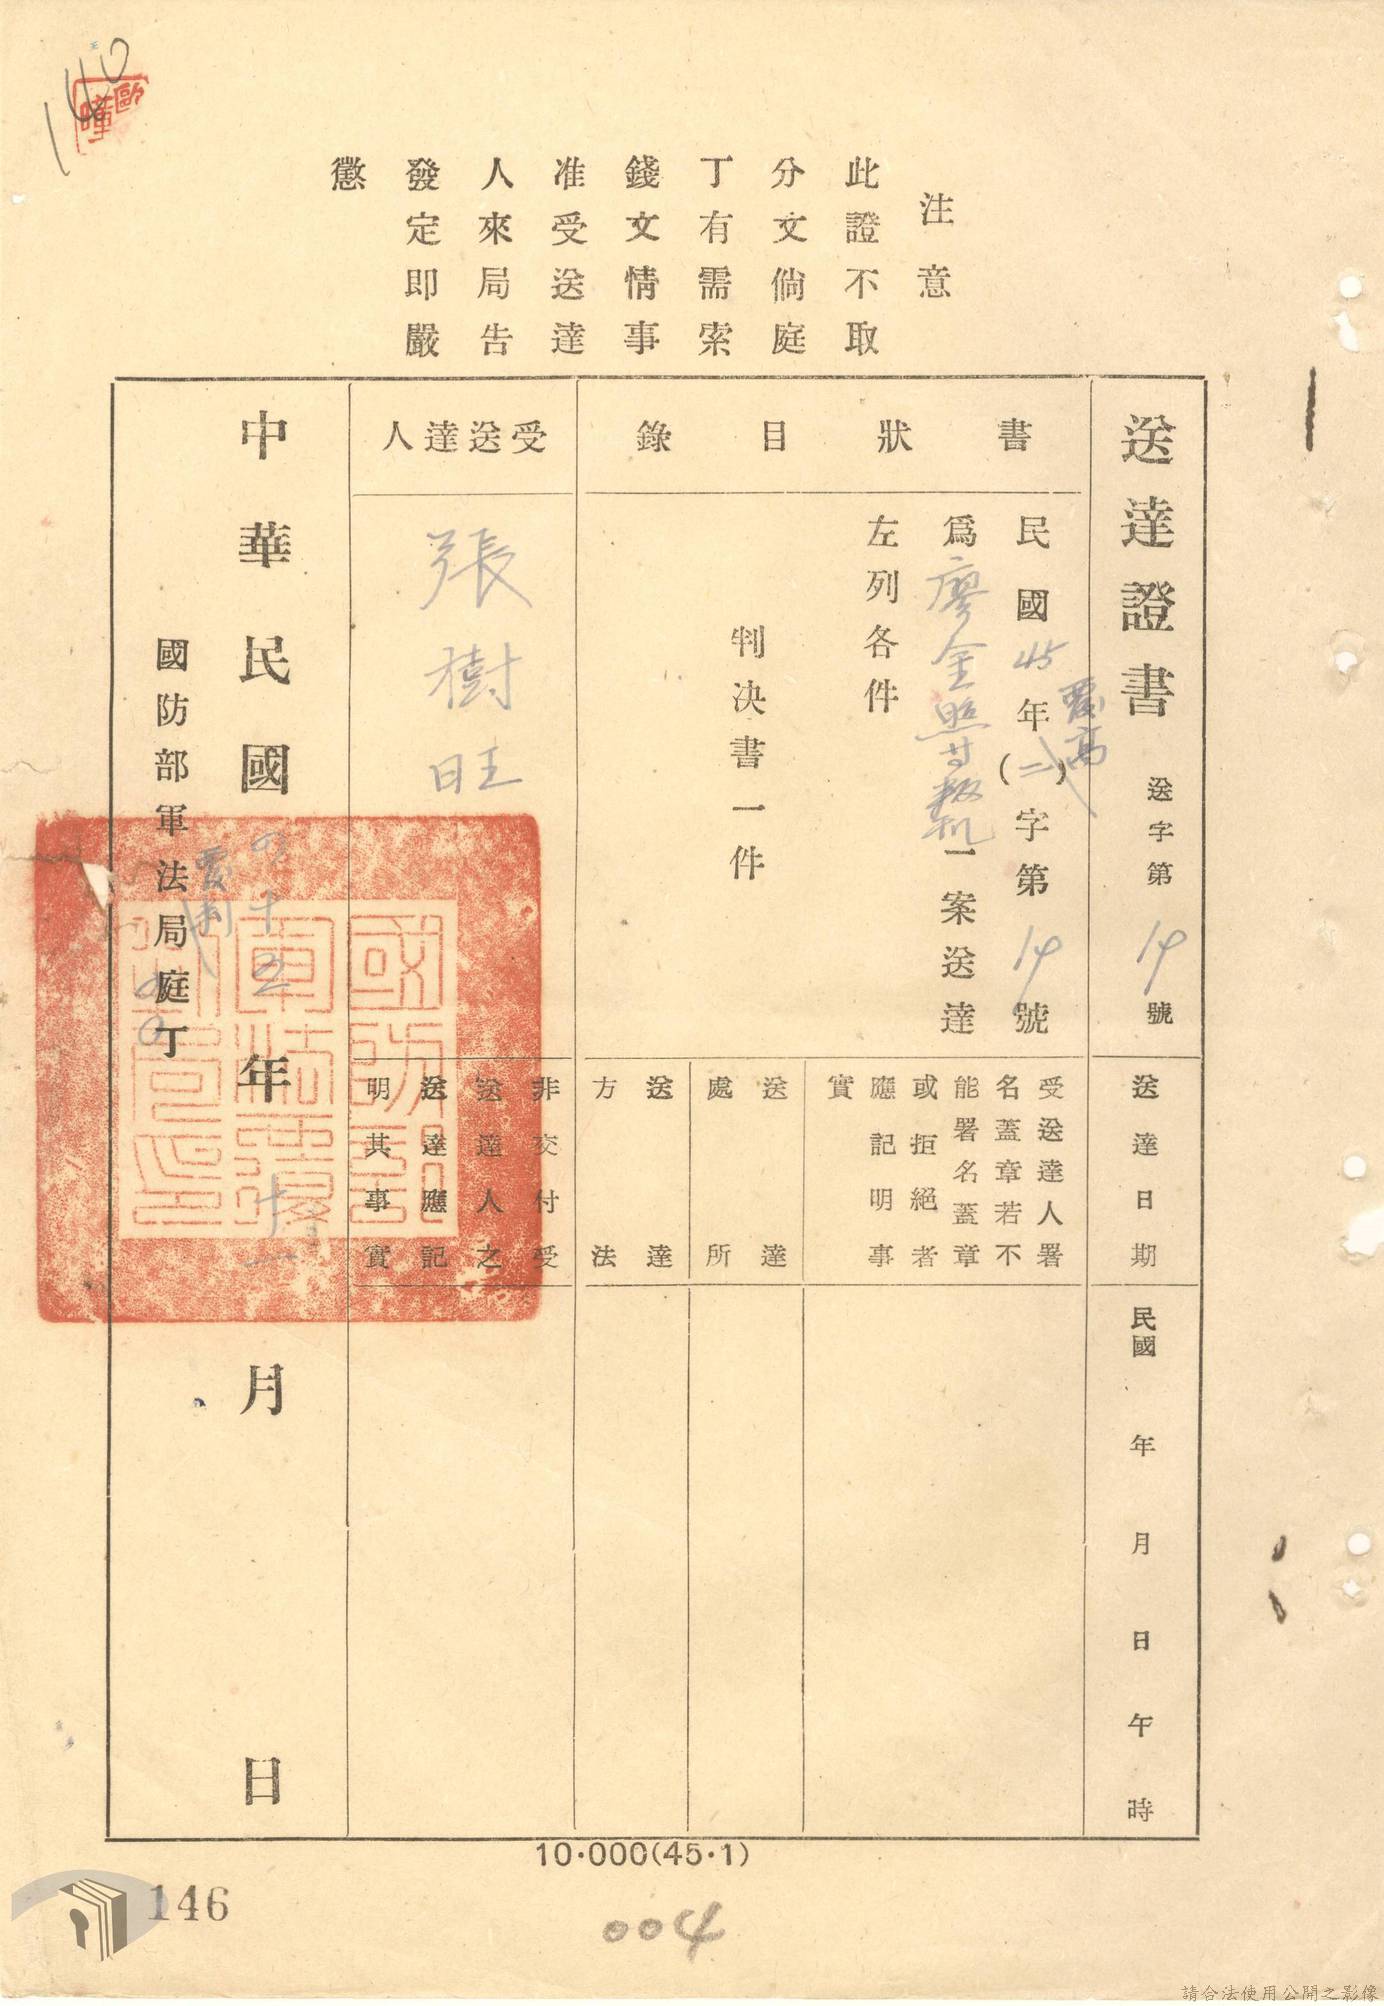 注意
此證不取
分文倘庭
丁有需索
錢文情事
准受送達
人來局告
發定即嚴
懲
送達證書
送字第14號
書狀目錄
民國45年(二)字第14號
爲廖金照等叛亂一案送達
左列各件
判決書一件
受送達人
張樹旺
送達日期
民國 年 月 日 午 時
受送達人署
名蓋章若不
能署名蓋章
或拒絕者
應記明事
實
送達
處所
送達
方法
非交付受
送達人之
送達應記
明其事實
中華民國四十五年十一月 日
國防部軍法局庭丁
10·000(45·1)
146
004
請合法使用公開之影像